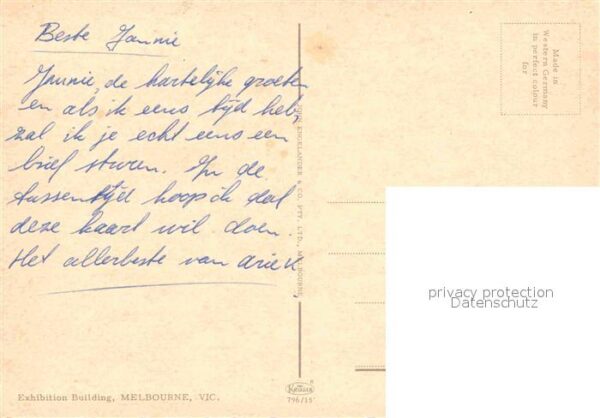 Beste Jannie
Jannie, de hartelijke groeten
en als ik eens tijd heb,
zal ik je echt eens een
brief sturen. In de
tussentijd hoop ik dat
deze kaart wil doen.
Het allerbeste van
Exhibition Building, MELBOURNE, VIC.
ENGELANDER & CO. PTY. LTD., MELBOURNE
796/15
Made in
Western Germany
in perfect colour
for
privacy protection
Datenschutz